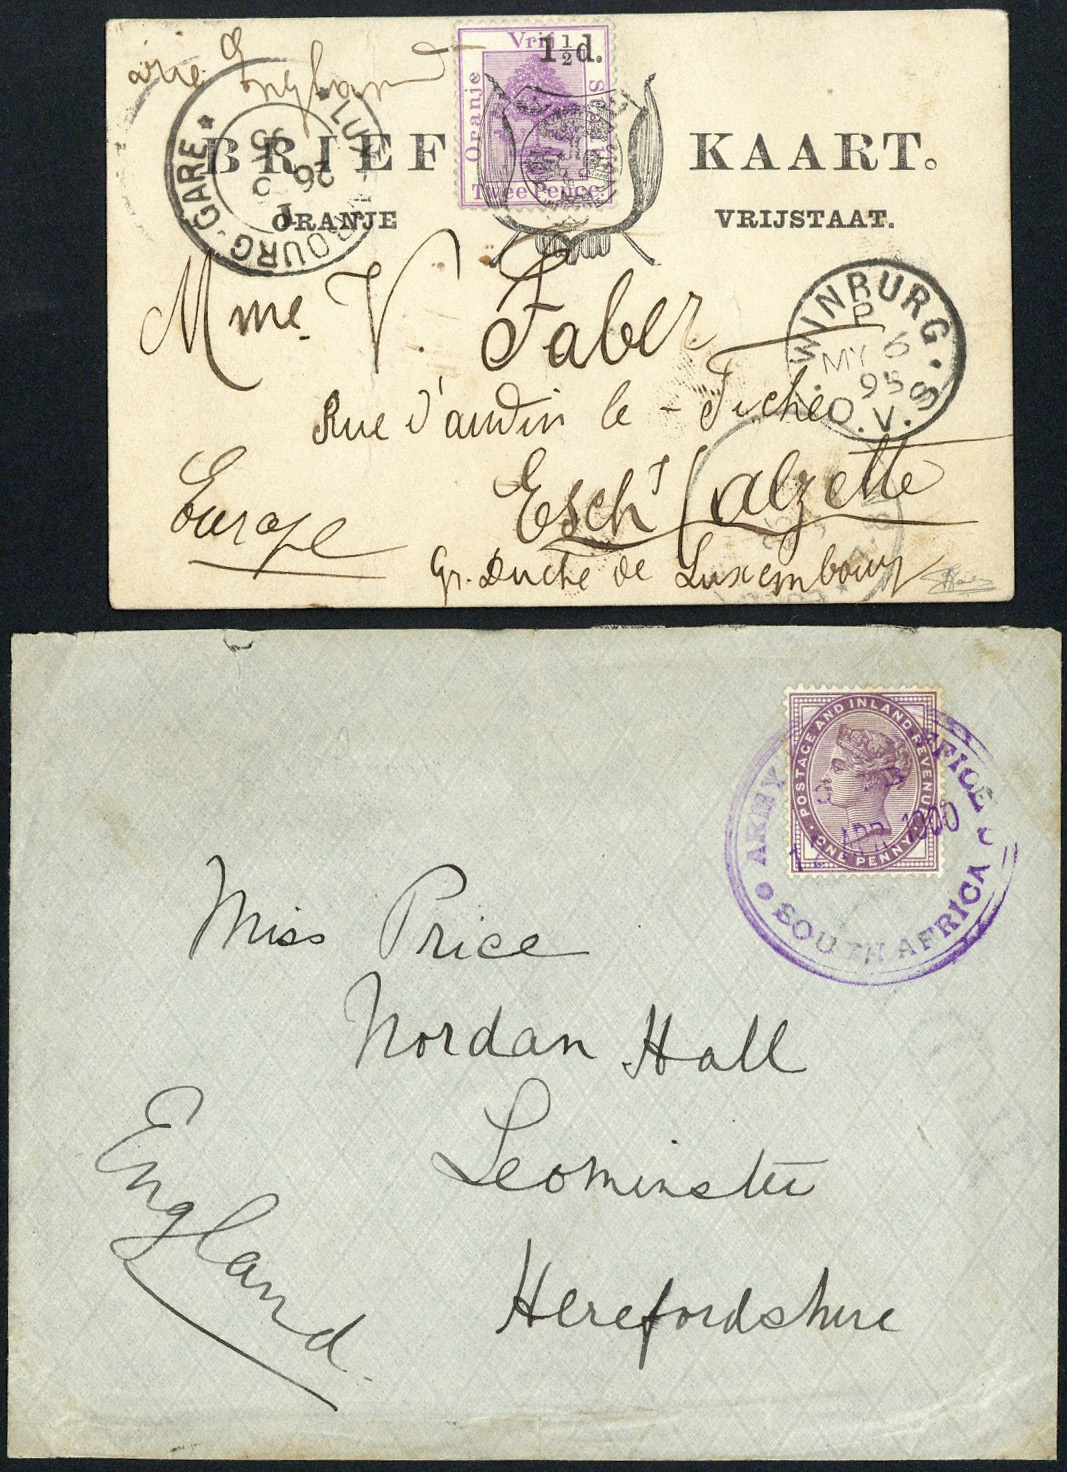 England
Vrij
1½d.
Oranje
Staat
Twee Pence
BRIEF KAART.
ORANJE VRIJSTAAT.
LUXEMBOURG-GARE
26
95
WINBURG
P
MY 6
95
O.V.S.
Mme. V. Faber
Rue d'audin le - Tiche
Esch s/ alzette
Europe
Gr. Duché de Luxembourg
POSTAGE AND INLAND REVENUE
ONE PENNY
ARMY OFFICE
APR 1900
SOUTH AFRICA
Miss Price
Nordan Hall
Leominster
Herefordshire
England